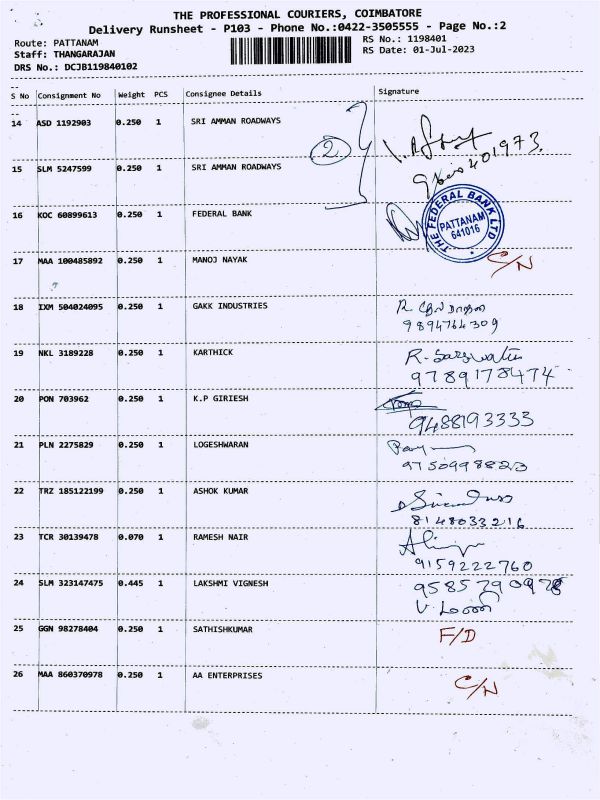 THE PROFESSIONAL COURIERS, COIMBATORE
Delivery Runsheet - P103 - Phone No.:0422-3505555 - Page No.:2
Route: PATTANAM RS No.: 1198401
Staff: THANGARAJAN RS Date: 01-Jul-2023
DRS No.: DCJB119840102
S No Consignment No Weight PCS Consignee Details Signature
14 ASD 1192903 0.250 1 SRI AMMAN ROADWAYS
2
15 SLM 5247599 0.250 1 SRI AMMAN ROADWAYS
16 KOC 60899613 0.250 1 FEDERAL BANK THE FEDERAL BANK LTD
PATTANAM
641016
17 MAA 100485892 0.250 1 MANOJ NAYAK C/N
18 IXM 504024095 0.250 1 GAKK INDUSTRIES
9894764309
19 NKL 3189228 0.250 1 KARTHICK R. Saraswathi
9789178474
20 PON 703962 0.250 1 K.P GIRIESH
9488193333
21 PLN 2275829 0.250 1 LOGESHWARAN
22 TRZ 185122199 0.250 1 ASHOK KUMAR
8148033216
23 TCR 30139478 0.070 1 RAMESH NAIR
9159222760
24 SLM 323147475 0.445 1 LAKSHMI VIGNESH
25 GGN 98278404 0.250 1 SATHISHKUMAR F/D
26 MAA 860370978 0.250 1 AA ENTERPRISES C/N